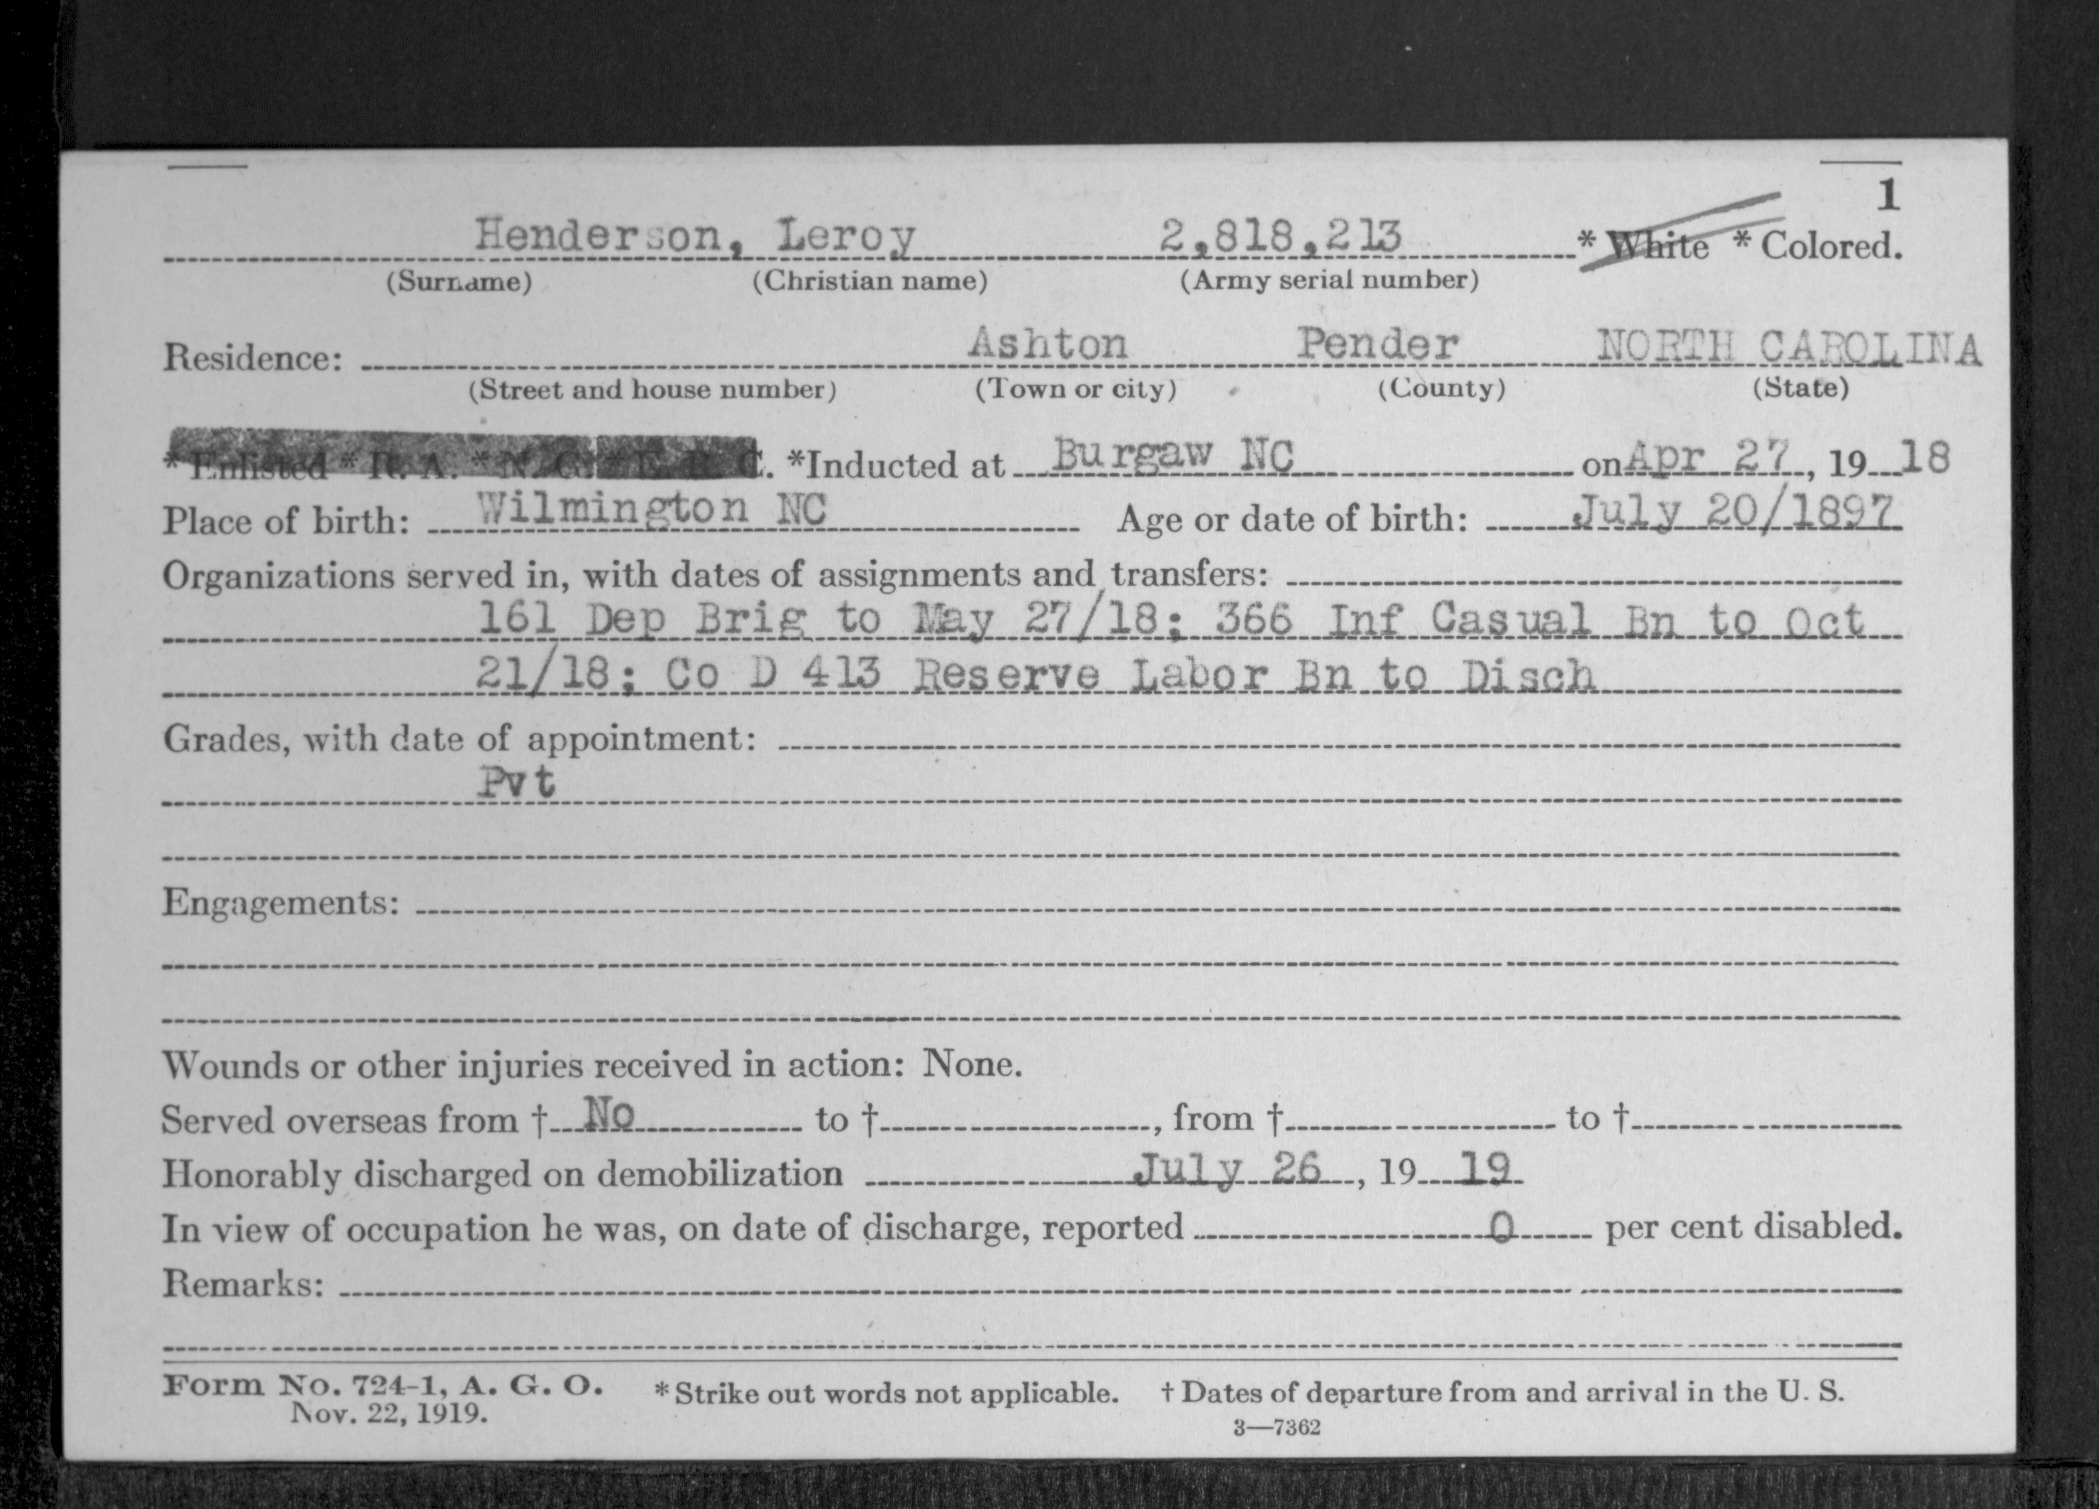 1
Henderson, Leroy 2,818,213 * White * Colored.
(Surname) (Christian name) (Army serial number)
Residence: Ashton Pender NORTH CAROLINA
(Street and house number) (Town or city) (County) (State)
* Enlisted * R. A. * N. G. * E. R. C. *Inducted at Burgaw NC on Apr 27, 19 18
Place of birth: Wilmington NC Age or date of birth: July 20/1897
Organizations served in, with dates of assignments and transfers:
161 Dep Brig to May 27/18; 366 Inf Casual Bn to Oct
21/18; Co D 413 Reserve Labor Bn to Disch
Grades, with date of appointment:
Pvt
Engagements:
Wounds or other injuries received in action: None.
Served overseas from † No to †, from † to †
Honorably discharged on demobilization July 26, 19 19
In view of occupation he was, on date of discharge, reported 0 per cent disabled.
Remarks:
Form No. 724-1, A. G. O. * Strike out words not applicable. † Dates of departure from and arrival in the U. S.
Nov. 22, 1919.
3—7362